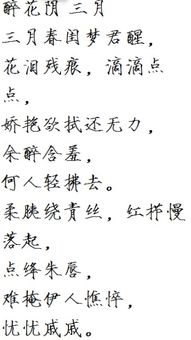 醉花阴 三月
三月春闺梦君醒，
花泪残痕，滴滴点
点，
娇艳欲拭还无力，
余醉含羞，
何人轻拂去。
柔胰绕青丝，红装慢
落起，
点绛朱唇，
难掩伊人憔悴，
忧忧戚戚。